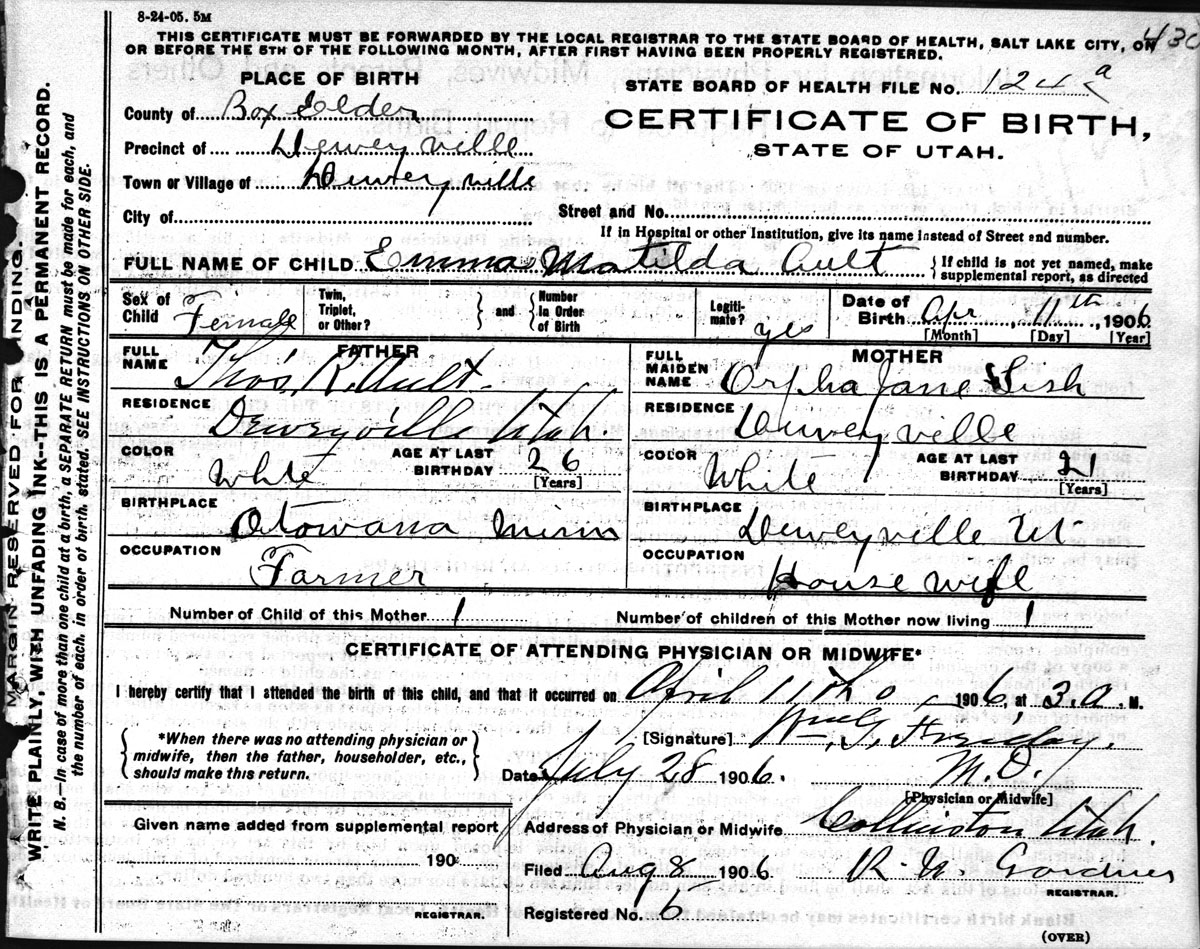 8-24-05. 5M
430
THIS CERTIFICATE MUST BE FORWARDED BY THE LOCAL REGISTRAR TO THE STATE BOARD OF HEALTH, SALT LAKE CITY, ON
OR BEFORE THE 5TH OF THE FOLLOWING MONTH, AFTER FIRST HAVING BEEN PROPERLY REGISTERED.
PLACE OF BIRTH
County of Box Elder
Precinct of Deweyville
Town or Village of Deweyville
City of
STATE BOARD OF HEALTH FILE No. 124 a
CERTIFICATE OF BIRTH,
STATE OF UTAH.
Street and No.
If in Hospital or other Institution, give its name instead of Street and number.
FULL NAME OF CHILD Emma Matilda Ault { If child is not yet named, make
supplemental report, as directed
Sex of Child Female
Twin, Triplet, or Other? } and { Number In Order of Birth
Legitimate? yes
Date of Birth Apr 11th, 1906
[Month] [Day] [Year]
FATHER
FULL NAME Thos R. Ault
RESIDENCE Deweyville Utah
COLOR White AGE AT LAST BIRTHDAY 26
[Years]
BIRTHPLACE Otowana Minn
OCCUPATION Farmer
MOTHER
FULL MAIDEN NAME Orpha Jane Lish
RESIDENCE Deweyville
COLOR White AGE AT LAST BIRTHDAY 21
[Years]
BIRTHPLACE Deweyville Ut
OCCUPATION House wife
Number of Child of this Mother 1 Number of children of this Mother now living 1
CERTIFICATE OF ATTENDING PHYSICIAN OR MIDWIFE*
I hereby certify that I attended the birth of this child, and that it occurred on April 11th 1906, at 3.a. M.
{ *When there was no attending physician or
midwife, then the father, householder, etc.,
should make this return. }
[Signature]
Date July 28 1906. M.D.
[Physician or Midwife]
Given name added from supplemental report
190
REGISTRAR.
Address of Physician or Midwife Collinston Utah.
Filed Aug 8 1906 R. N. Gardner
REGISTRAR.
Registered No. 6
(OVER)
MARGIN RESERVED FOR BINDING.
WRITE PLAINLY, WITH UNFADING INK--THIS IS A PERMANENT RECORD.
N. B.—In case of more than one child at a birth, a SEPARATE RETURN must be made for each, and
the number of each, in order of birth, stated. SEE INSTRUCTIONS ON OTHER SIDE.